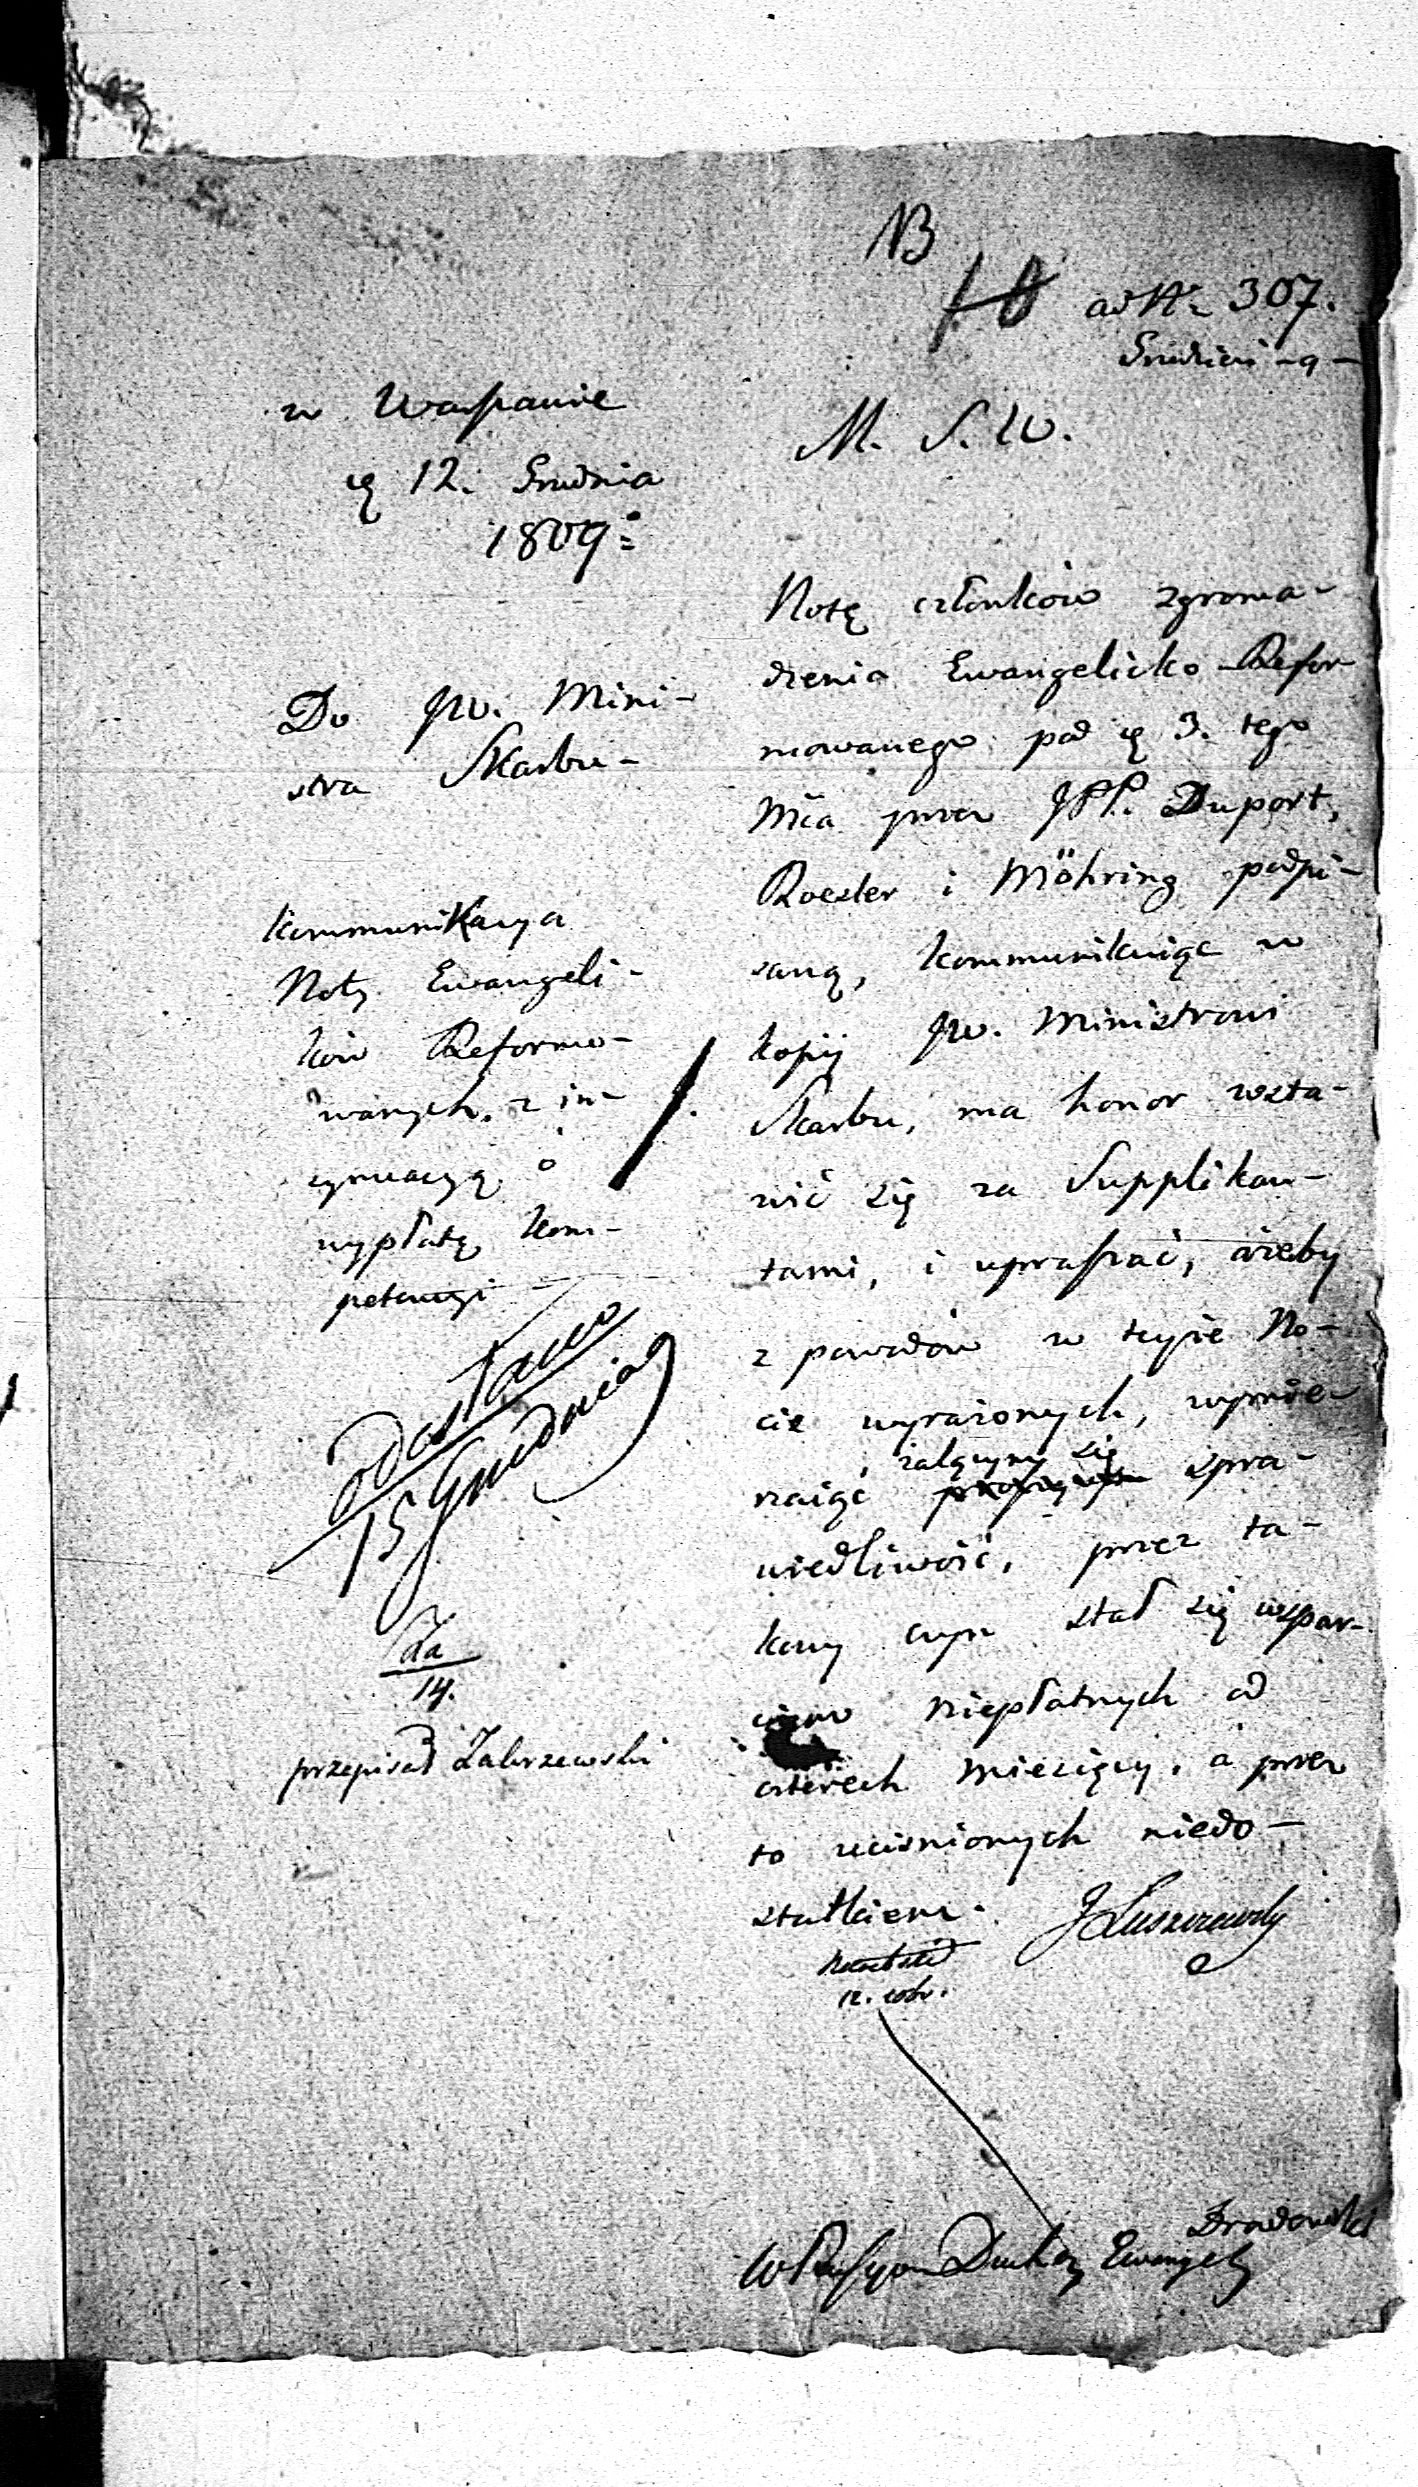 NB
ad Nr 307.
Grudzień - 9 -
w Warszawie
d 12. Grudnia
1809.
M. S. W.
Do JW. Mini-
stra Skarbu -
Kommunikacya
Noty Ewangeli-
ków Reformo-
wanych z in-
synuacyą o
wypłatę kom-
petencyi -
odesłano
15 Grudnia
Za
14.
przepisał Zakrzewski
Notę członków zgroma-
dzenia Ewangelicko-Refor-
mowanego pod d 3. tego
Mca przez JPP. Duport,
Roesler i Möhring podpi-
saną, kommunikuiąc w
kopij JW. Ministrowi
Skarbu, ma honor wsta-
wić się za Supplikan-
tami, i upraszać, ażeby
z powodów w teyże No-
cie wyrażonych, wymie-
rzaiąc żalącym się spra-
wiedliwość, przez ta-
kowy czyn stał się wspar-
ciem niepłatnych od
czterech miesięcy, a przez
to uciśnionych niedo-
statkiem.
J Łuszczewski
12. xbr.
Ewangel